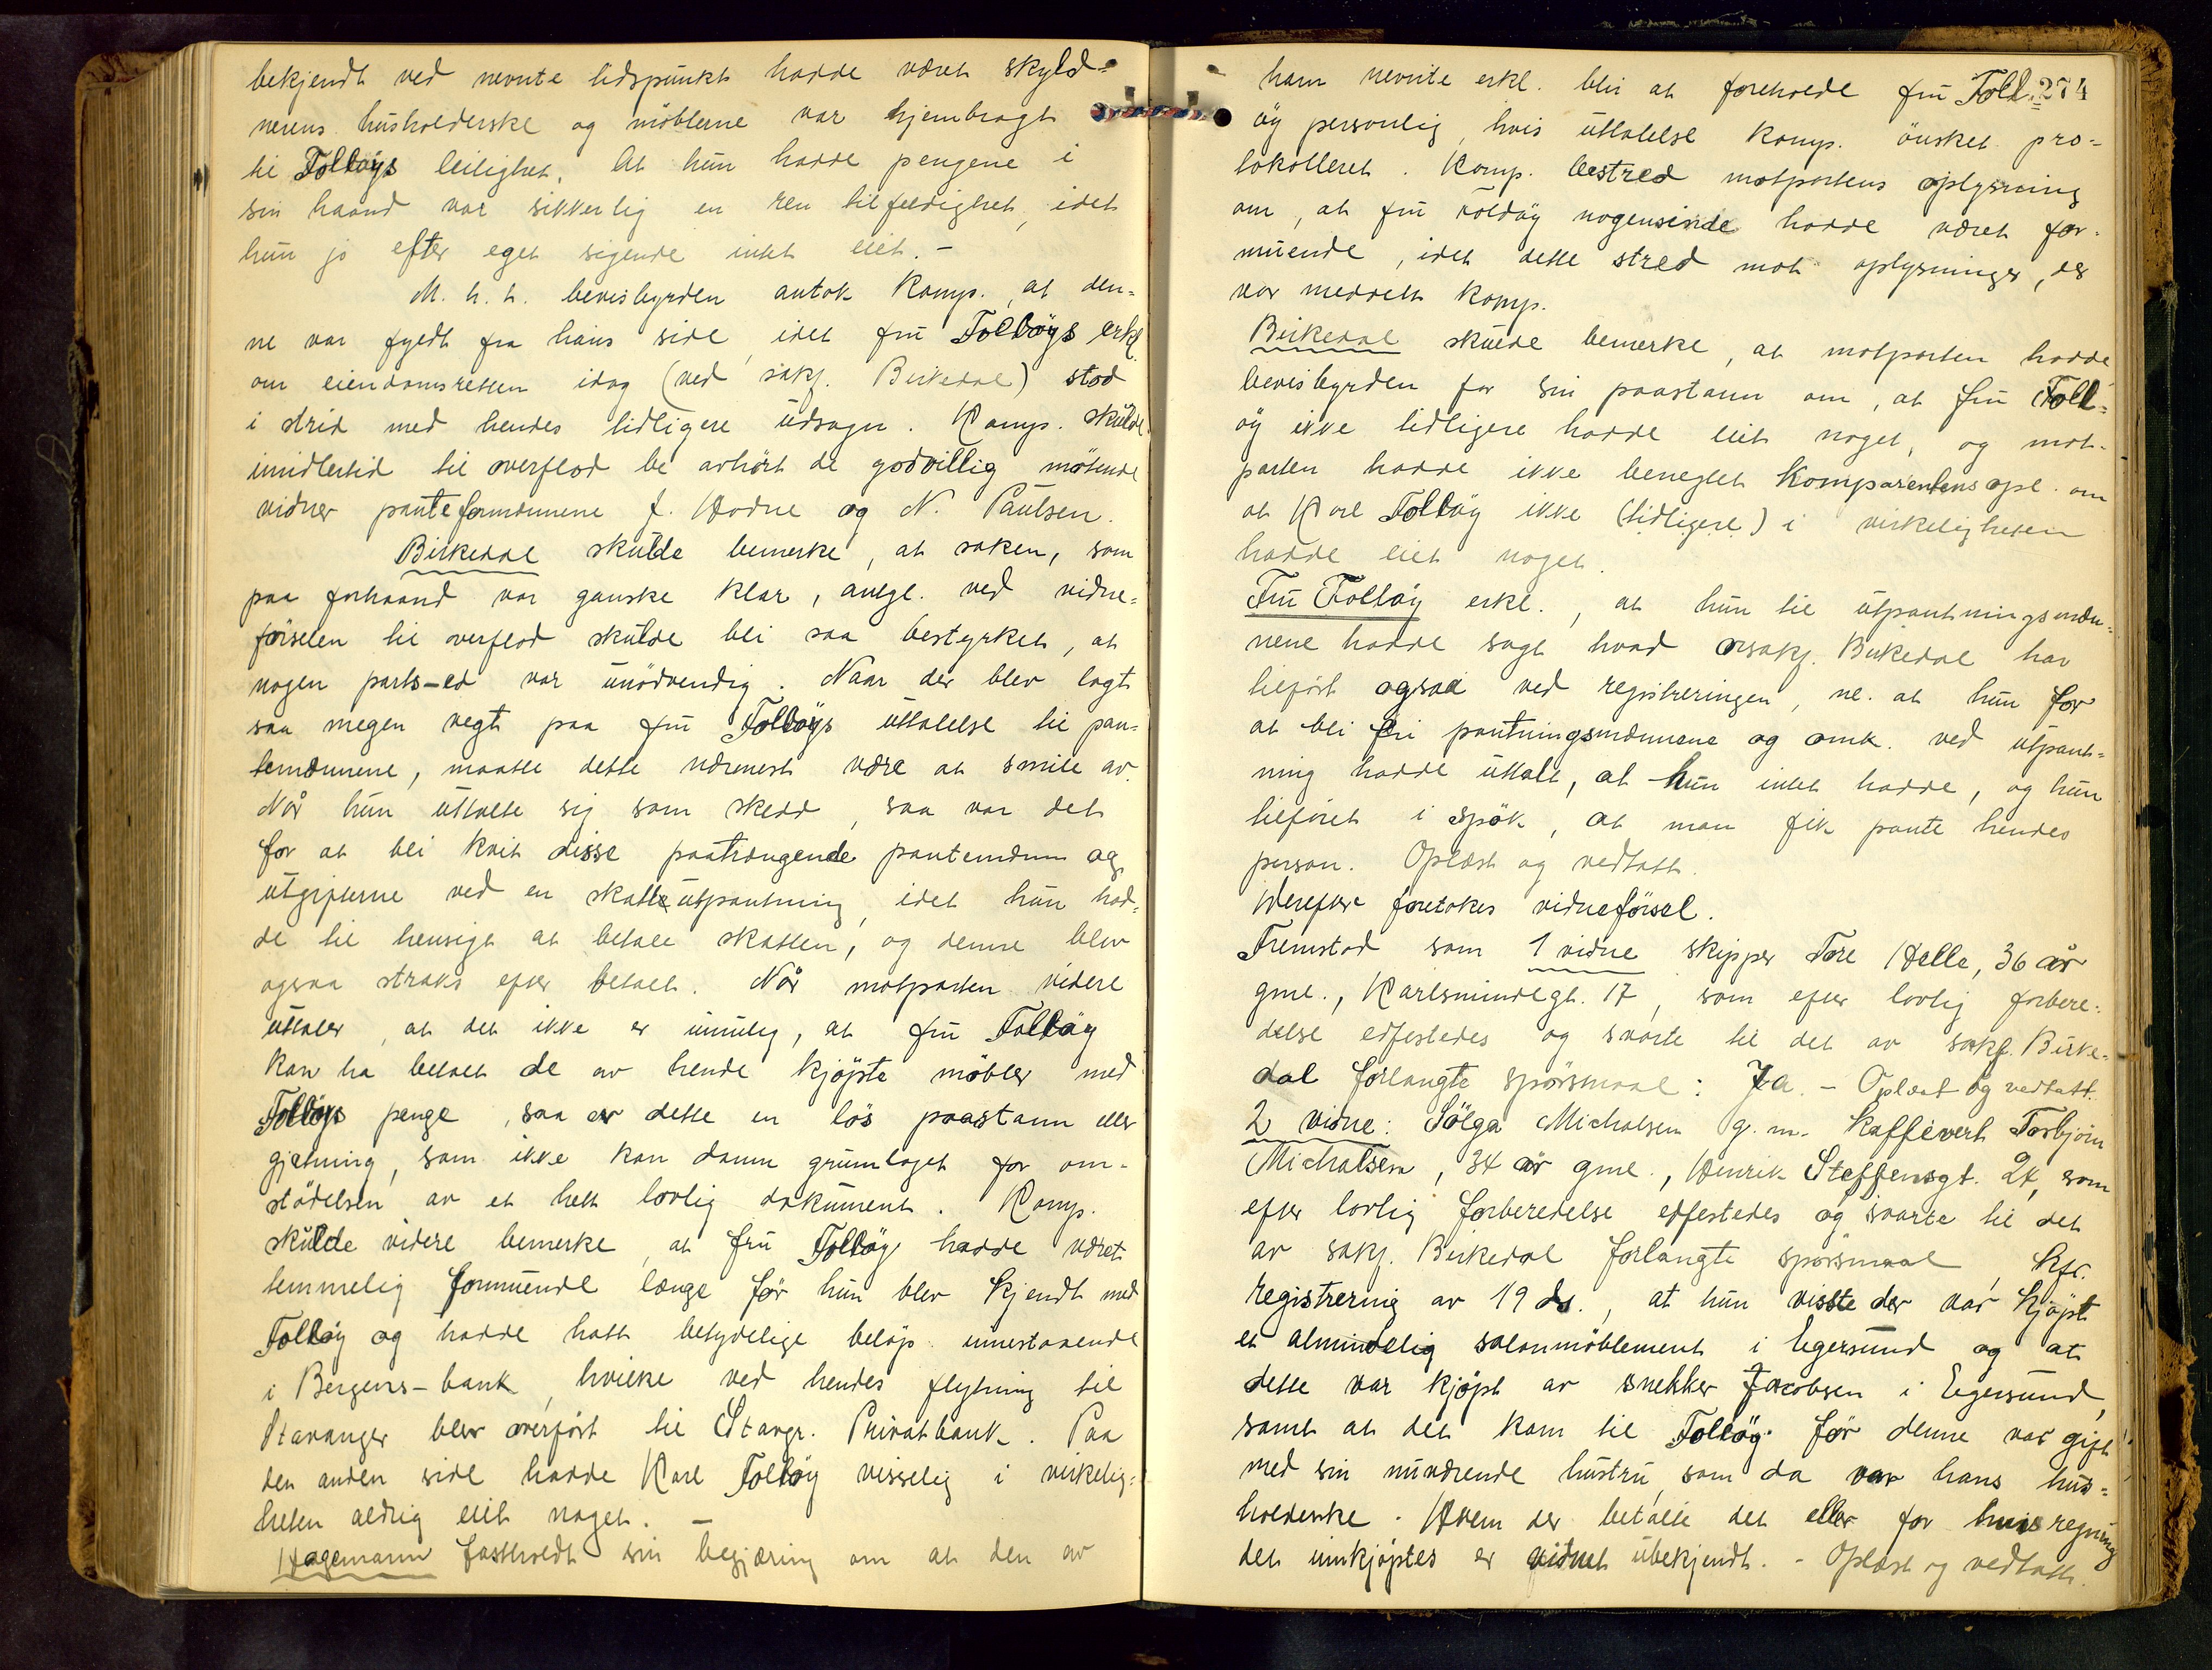 bekjendt ved nevnte tidspunkt hadde været skyld-
nerens husholderske og möblerne var hjembragt
til Tolløys leilighet. At hun hadde pengene i
sin haand var sikkerlig en ren tilfeldighet, idet
hun jo efter eget sigende intet eiet. -
M. h. t. bevisbyrden antok Komp., at den-
ne var fyldt fra hans side, idet fru Tolløys erkl.
om eiendomsretten idag (ved sakf. Birkedal) stod
i strid med hendes tidligere udsagn. Komp. skulde
imidlertid til overflod be avhört de godvillig mötende
vidner panteformænnene J. Hodne og N. Paulsen.
Birkedal skulde bemerke, at saken, som
paa forhaand var ganske klar, antgl. ved vidne-
förselen til overflod skulde bli saa bestyrket, at
nogen parts-ed var unödvendig. Naar der blev lagt
saa megen vegt paa fru Tolløys uttalelse til pan-
temænnene, maatte dette nærmest være at smile av.
Når hun uttalte sig som skedd, saa var det
for at bli kvit disse paatrængende pantemænn og
utgifterne ved en skatteutpantning, idet hun had-
de til hensigt at betale skatten, og denne blev
ogsaa straks efter betalt. Når motparten videre
uttaler, at det ikke er umulig, at fru Tolløy
kan ha betalt de av hende kjøpte møbler med
Tolløys penge, saa er dette en lös paastann eller
gjetning, som ikke kan danne grunnlaget for om-
stödelsen av et helt lovlig dokument. Komp.
skulde videre bemerke, at fru Tolløy hadde været
temmelig formuende længe før hun blev kjendt med
Tolløy og hadde hatt betydelige beløp innestaaende
i Bergens-bank, hvilke ved hendes flytning til
Stavanger blev overfört til Stavgr. Privatbank. Paa
den anden side hadde Karl Tolløy visselig i virkelig-
heten aldrig eiet noget. -
Hagemann fastholdt sin begjæring om at den av
274
ham nevnte erkl. blir at foreholde fru Toll-
øy personlig, hvis uttalelse Komp. ønsket pro-
tokolleret. Komp. bestred motpartens oplysning
om, at fru Tolløy nogensinde hadde været for-
muende, idet dette stred mot oplysninger, der
var meddelt Komp.
Birkedal skulde bemerke, at motparten hadde
bevisbyrden for sin paastann om, at fru Toll-
øy ikke tidligere hadde eiet noget, og mot-
parten hadde ikke benegtet Komparentens opl. om
at Karl Tolløy ikke (tidligere) i virkeligheten
hadde eiet noget.
Fru Tolløy erkl., at hun til utpantningsmæn-
nene hadde sagt hvad orsakf. Birkedal har
tilført ogsaa ved registreringen, nl. at hun for
at bli fri pantningsmænnene og omk. ved utpant-
ning hadde uttalt, at hun intet hadde, og hun
tilføiet i spøk, at man fik pante hendes
person. Oplæst og vedtatt.
Derefter foretokes vidneførsel.
Fremstod som 1 vidne skipper Tore Helle, 36 år
gml., Karlsmindegt. 17, som efter lovlig forbere-
delse edfestedes og svarte til det av sakf. Birke-
dal forlangte spørsmaal: Ja. - Oplæst og vedtatt.
2 vidne: Sölga Michalsen g. m. kaffévert Torbjörn
Michalsen, 34 år gml., Henrik Steffensgt. 24, som
efter lovlig forberedelse edfestedes og svarte til det
av sakf. Birkedal forlangte spørsmaal, kfr.
registrering av 19 ds., at hun visste der var kjøpt
et almindelig salonmöblement i Egersund og at
dette var kjøpt av snekker Jacobsen i Egersund,
samt at det kom til Tolløy før denne var gift
med sin nuværende hustru, som da var hans hus-
holderske. Hvem der betalte det eller for hvis regning
det innkjøptes er vidnet ubekjendt. - Oplæst og vedtatt.